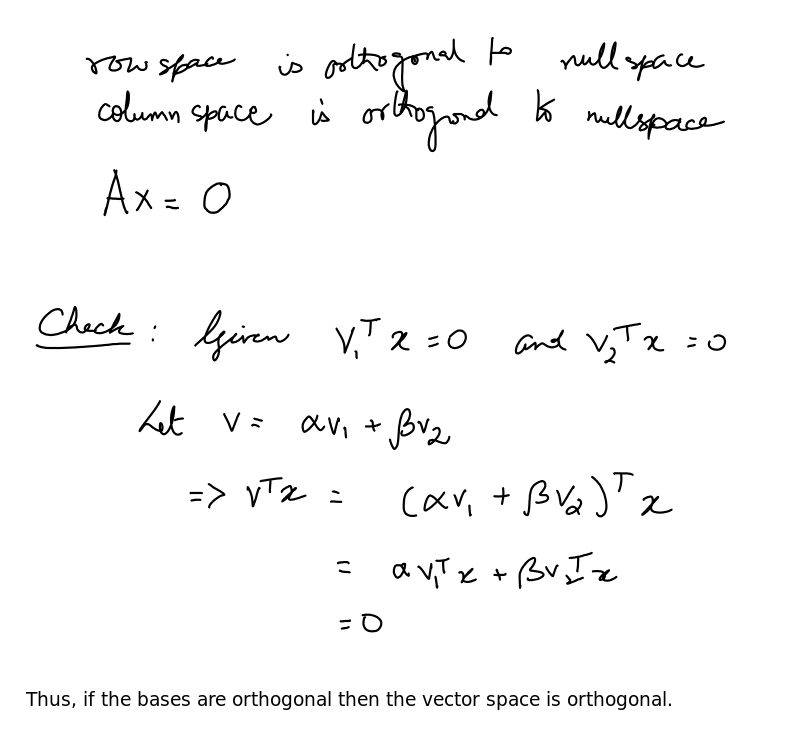 row space is orthogonal to nullspace
column space is orthogonal to nullspace
Ax = 0
Check : Given V₁ᵀ x = 0 and V₂ᵀ x = 0
Let V = αv₁ + βv₂
=> Vᵀx = (αv₁ + βv₂)ᵀ x
= αv₁ᵀx + βv₂ᵀx
= 0
Thus, if the bases are orthogonal then the vector space is orthogonal.